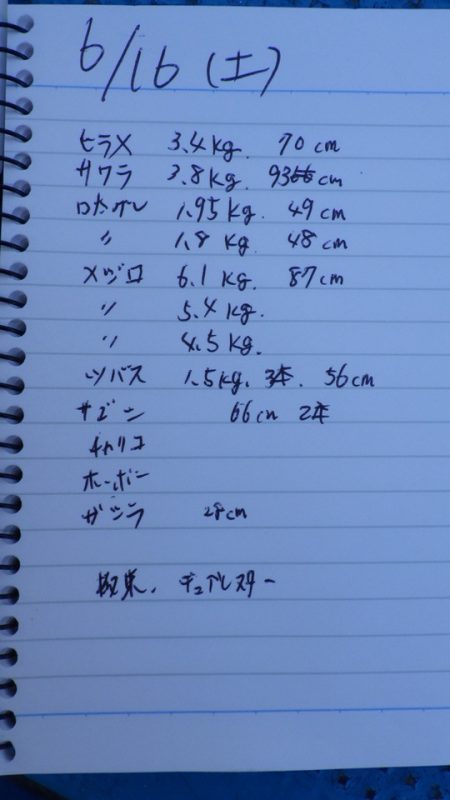 6/16 (土)
ヒラメ 3.4kg. 70cm
サワラ 3.8kg. 93cm
1.95kg. 49cm
〃 1.8kg. 48cm
メジロ 6.1kg. 87cm
〃 5.4kg.
〃 4.5kg.
ツバス 1.5kg. 3本. 56cm
サゴシ 66cm 2本
チャリコ
ホーボー
ガシラ 28cm
デュアルスター